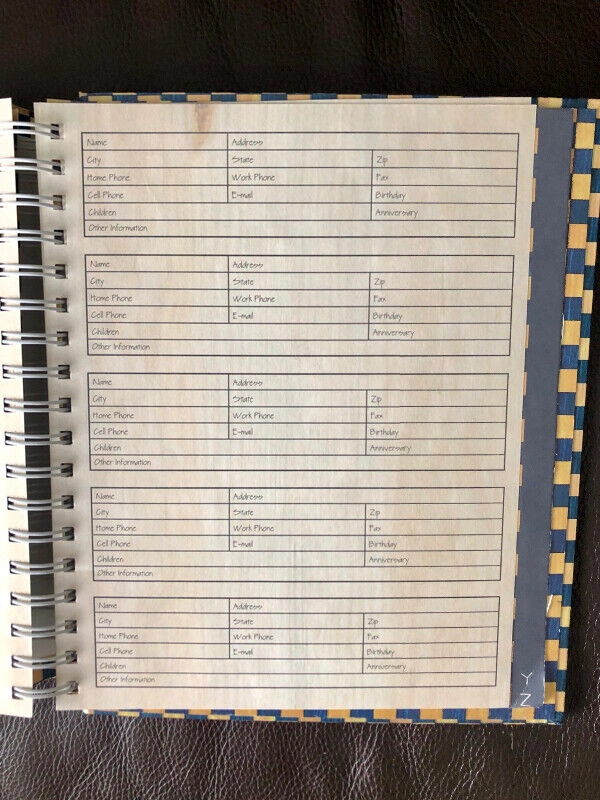 Name Address
City State Zip
Home Phone Work Phone Fax
Cell Phone E-mail Birthday
Children Anniversary
Other Information
Name Address
City State Zip
Home Phone Work Phone Fax
Cell Phone E-mail Birthday
Children Anniversary
Other Information
Name Address
City State Zip
Home Phone Work Phone Fax
Cell Phone E-mail Birthday
Children Anniversary
Other Information
Name Address
City State Zip
Home Phone Work Phone Fax
Cell Phone E-mail Birthday
Children Anniversary
Other Information
Name Address
City State Zip
Home Phone Work Phone Fax
Cell Phone E-mail Birthday
Children Anniversary
Other Information
Y
Z